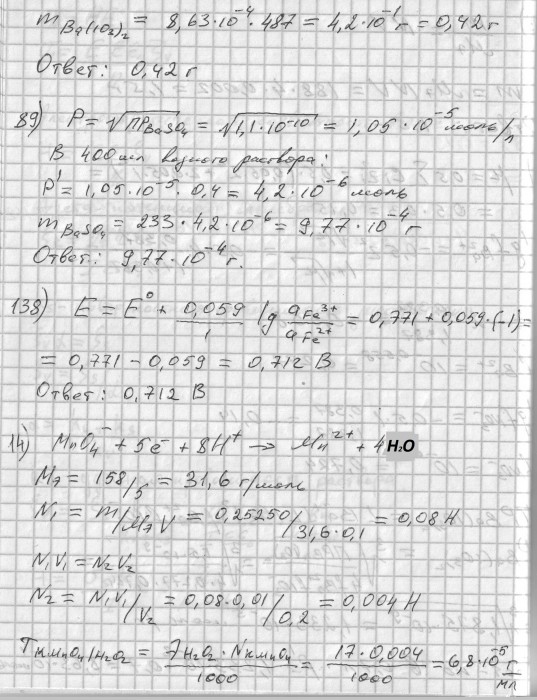 m Ba(IO3)2 = 8,63·10⁻⁴·487 = 4,2·10⁻¹г = 0,42 г
Ответ: 0,42 г
89) P = √ПР BaSO₄ = √1,1·10⁻¹⁰ = 1,05·10⁻⁵ моль/л
В 400 мл водного раствора:
P' = 1,05·10⁻⁵·0,4 = 4,2·10⁻⁶ моль
m BaSO₄ = 233·4,2·10⁻⁶ = 9,77·10⁻⁴ г
Ответ: 9,77·10⁻⁴ г.
138) E = E⁰ + 0,059/1 lg a Fe³⁺/a Fe²⁺ = 0,771 + 0,059·(-1) =
= 0,771 - 0,059 = 0,712 В
Ответ: 0,712 В
14) MnO₄⁻ + 5e⁻ + 8H⁺ → Mn²⁺ + 4H₂O
Mэ = 158/5 = 31,6 г/моль
N₁ = m/Mэ V = 0,25250/31,6·0,1 = 0,08 Н
N₁V₁ = N₂V₂
N₂ = N₁V₁/V₂ = 0,08·0,01/0,2 = 0,004 Н
T KMnO₄/H₂O₂ = Э H₂O₂ · N KMnO₄/1000 = 17·0,004/1000 = 6,8·10⁻⁵ г/мл